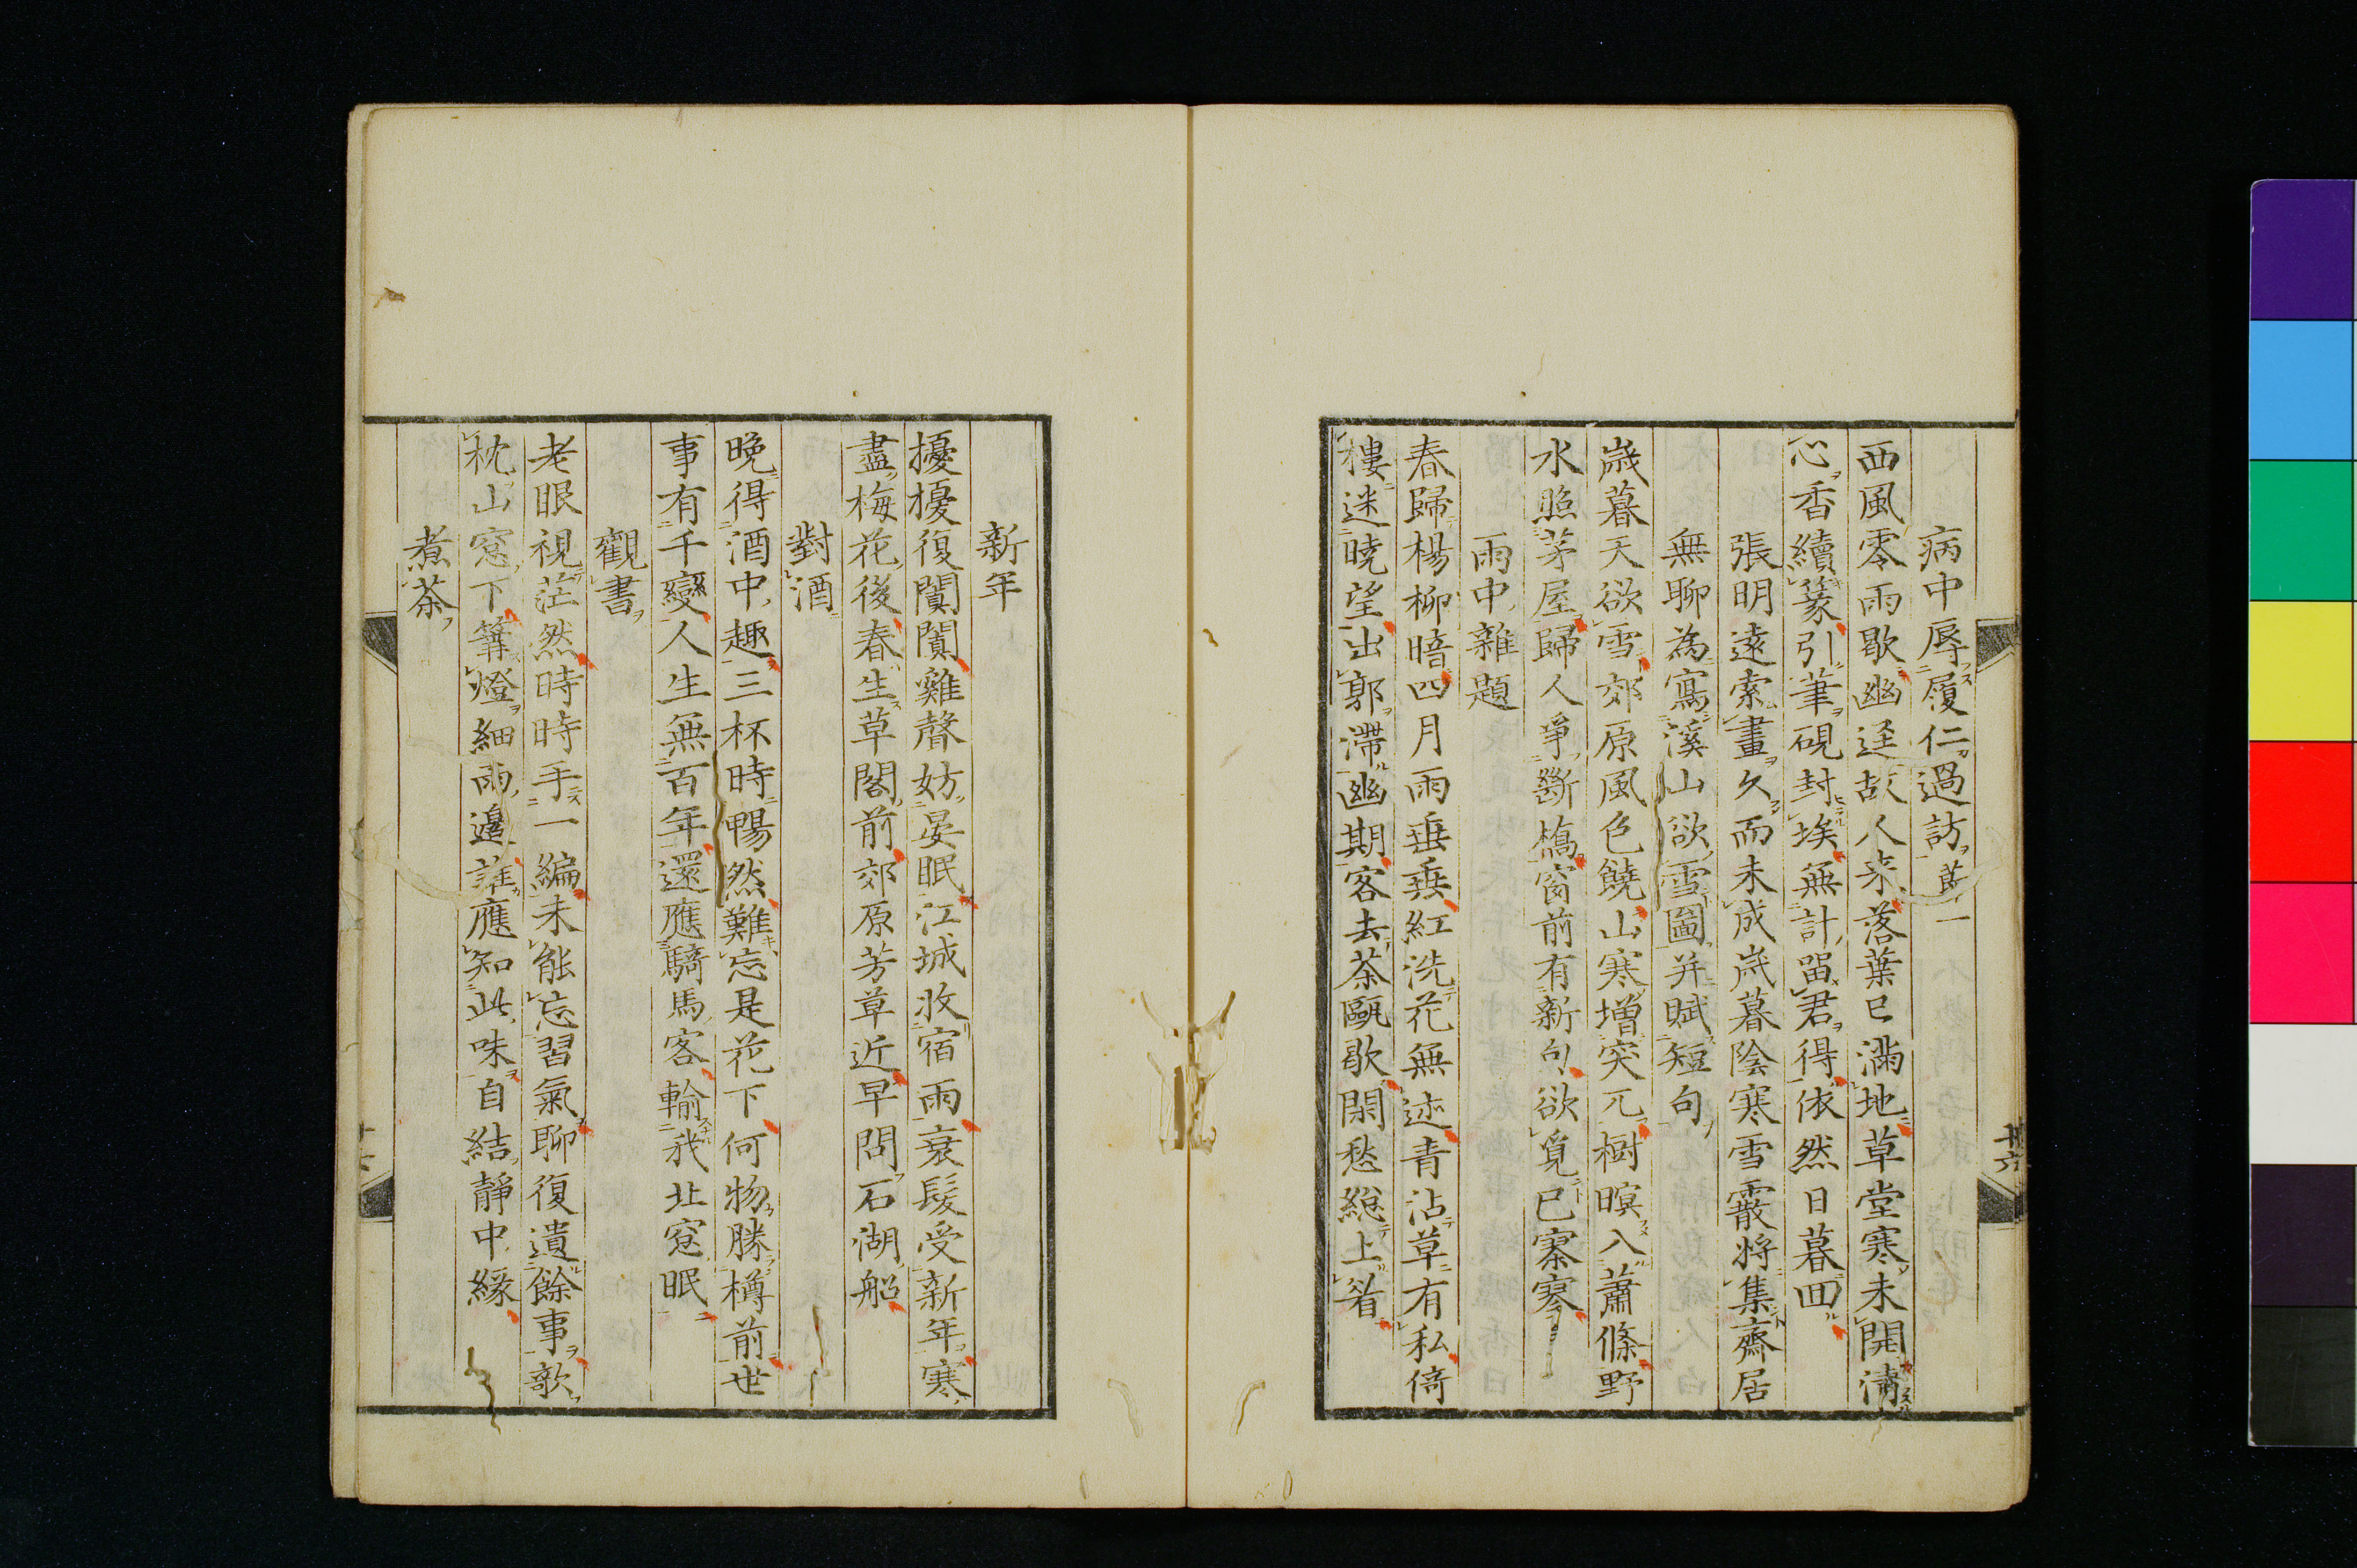 病中辱履仁過訪
西風零雨歇幽逕故人来落葉已滿地草堂寒未開清
心香續篆引筆硯封埃無計畱君得依然日暮回
張明遠索畫久而未成歳暮陰寒雪霰将集齋居
無聊為寫溪山欲雪圖并賦短句
歳暮天欲雪郊原風色饒山寒增突兀樹暝入蕭條野
水照茅屋歸人爭斷橋窗前有新句欲覓已寥寥
雨中雜題
春歸楊柳暗四月雨垂垂紅洗花無迹青沾草有私倚
樓迷曉望出郭滯幽期客去茶甌歇閑愁總上眉
廿六
新年
擾擾復闐闐雞聲妨晏眠江城收宿雨衰髮受新年寒
盡梅花後春生草閣前郊原芳草近早問石湖船
對酒
晚得酒中趣三杯時暢然難忘是花下何物勝樽前世
事有千變人生無百年還應騎馬客輸我北窓眠
觀書
老眼視茫然時時手一編未能忘習氣聊復遣餘事歌
枕山窓下篝燈細雨邊誰應知此味自結靜中緣
煮茶